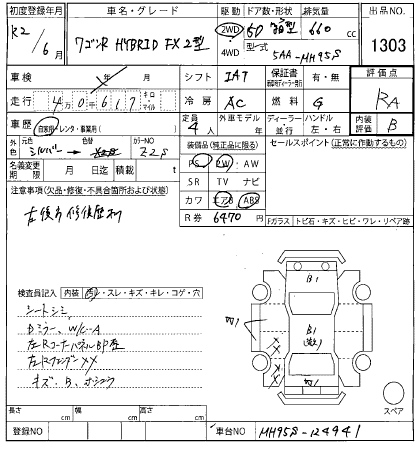 初度登録年月 車名・グレード 駆動 ドア数・形状 排気量 出品NO.
R2年 6月 ワゴンR HYBRID FX 2型 2WD 4WD 5D 660 cc 1303
型式 5AA-MH95S
車検 年 月 シフト IAT 保証書 有・無 評価点
走行 4万0千617 キロ・マイル 冷房 AC 燃料 G RA
車歴 自家用・レンタ・事業用( ) 定員 4人 外車モデル年 ディーラー・並行 ハンドル 左・右 内装評価 B
外色 元色 シルバー 色替 カラーNO Z2S 装備品(純正品に限る) セールスポイント(正常に作動するもの)
名義変更期限 月 日迄 積載 t PS PW AW
SR TV ナビ
注意事項(欠品・修復・不具合箇所および状態) カワ エアB ABS
左後方修復歴有 R券 6470 円
Fガラス トビ石・キズ・ヒビ・ワレ・リペア跡
検査員記入 内装 スレ・キズ・キレ・コゲ・穴
シートシミ
W/C-A
左Rコーナーパネル部
左Rフェンダー XX
キズ、B、
B1
B1
スペア
長さ cm 幅 cm 高さ cm
登録NO 車台NO MH95S-124941